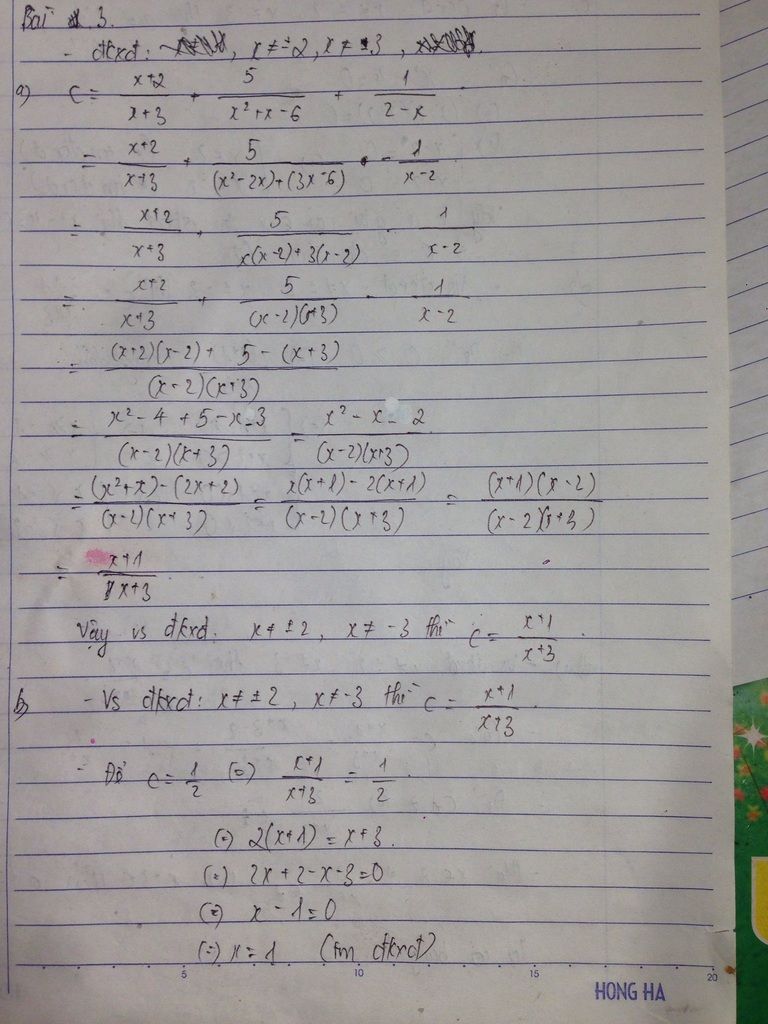 Bài 3.
- đkxđ: , x ≠ ±2, x ≠ -3 ,
a) C = (x+2)/(x+3) + 5/(x²+x-6) + 1/(2-x)
= (x+2)/(x+3) + 5/((x²-2x)+(3x-6)) - 1/(x-2)
= (x+2)/(x+3) + 5/(x(x-2)+3(x-2)) - 1/(x-2)
= (x+2)/(x+3) + 5/((x-2)(x+3)) - 1/(x-2)
= ((x+2)(x-2) + 5 - (x+3))/((x-2)(x+3))
= (x²-4+5-x-3)/((x-2)(x+3)) = (x²-x-2)/((x-2)(x+3))
= ((x²+x)-(2x+2))/((x-2)(x+3)) = (x(x+1)-2(x+1))/((x-2)(x+3)) = ((x+1)(x-2))/((x-2)(x+3))
= (x+1)/(x+3)
Vậy vs đkxđ: x ≠ ±2, x ≠ -3 thì C = (x+1)/(x+3).
b) - Vs đkxđ: x ≠ ±2, x ≠ -3 thì C = (x+1)/(x+3).
- Để C = 1/2 (=) (x+1)/(x+3) = 1/2.
(=) 2(x+1) = x+3.
(=) 2x+2-x-3=0
(=) x-1=0
(=) x=1 (tm đkxđ)
5 10 15 20
HONG HA